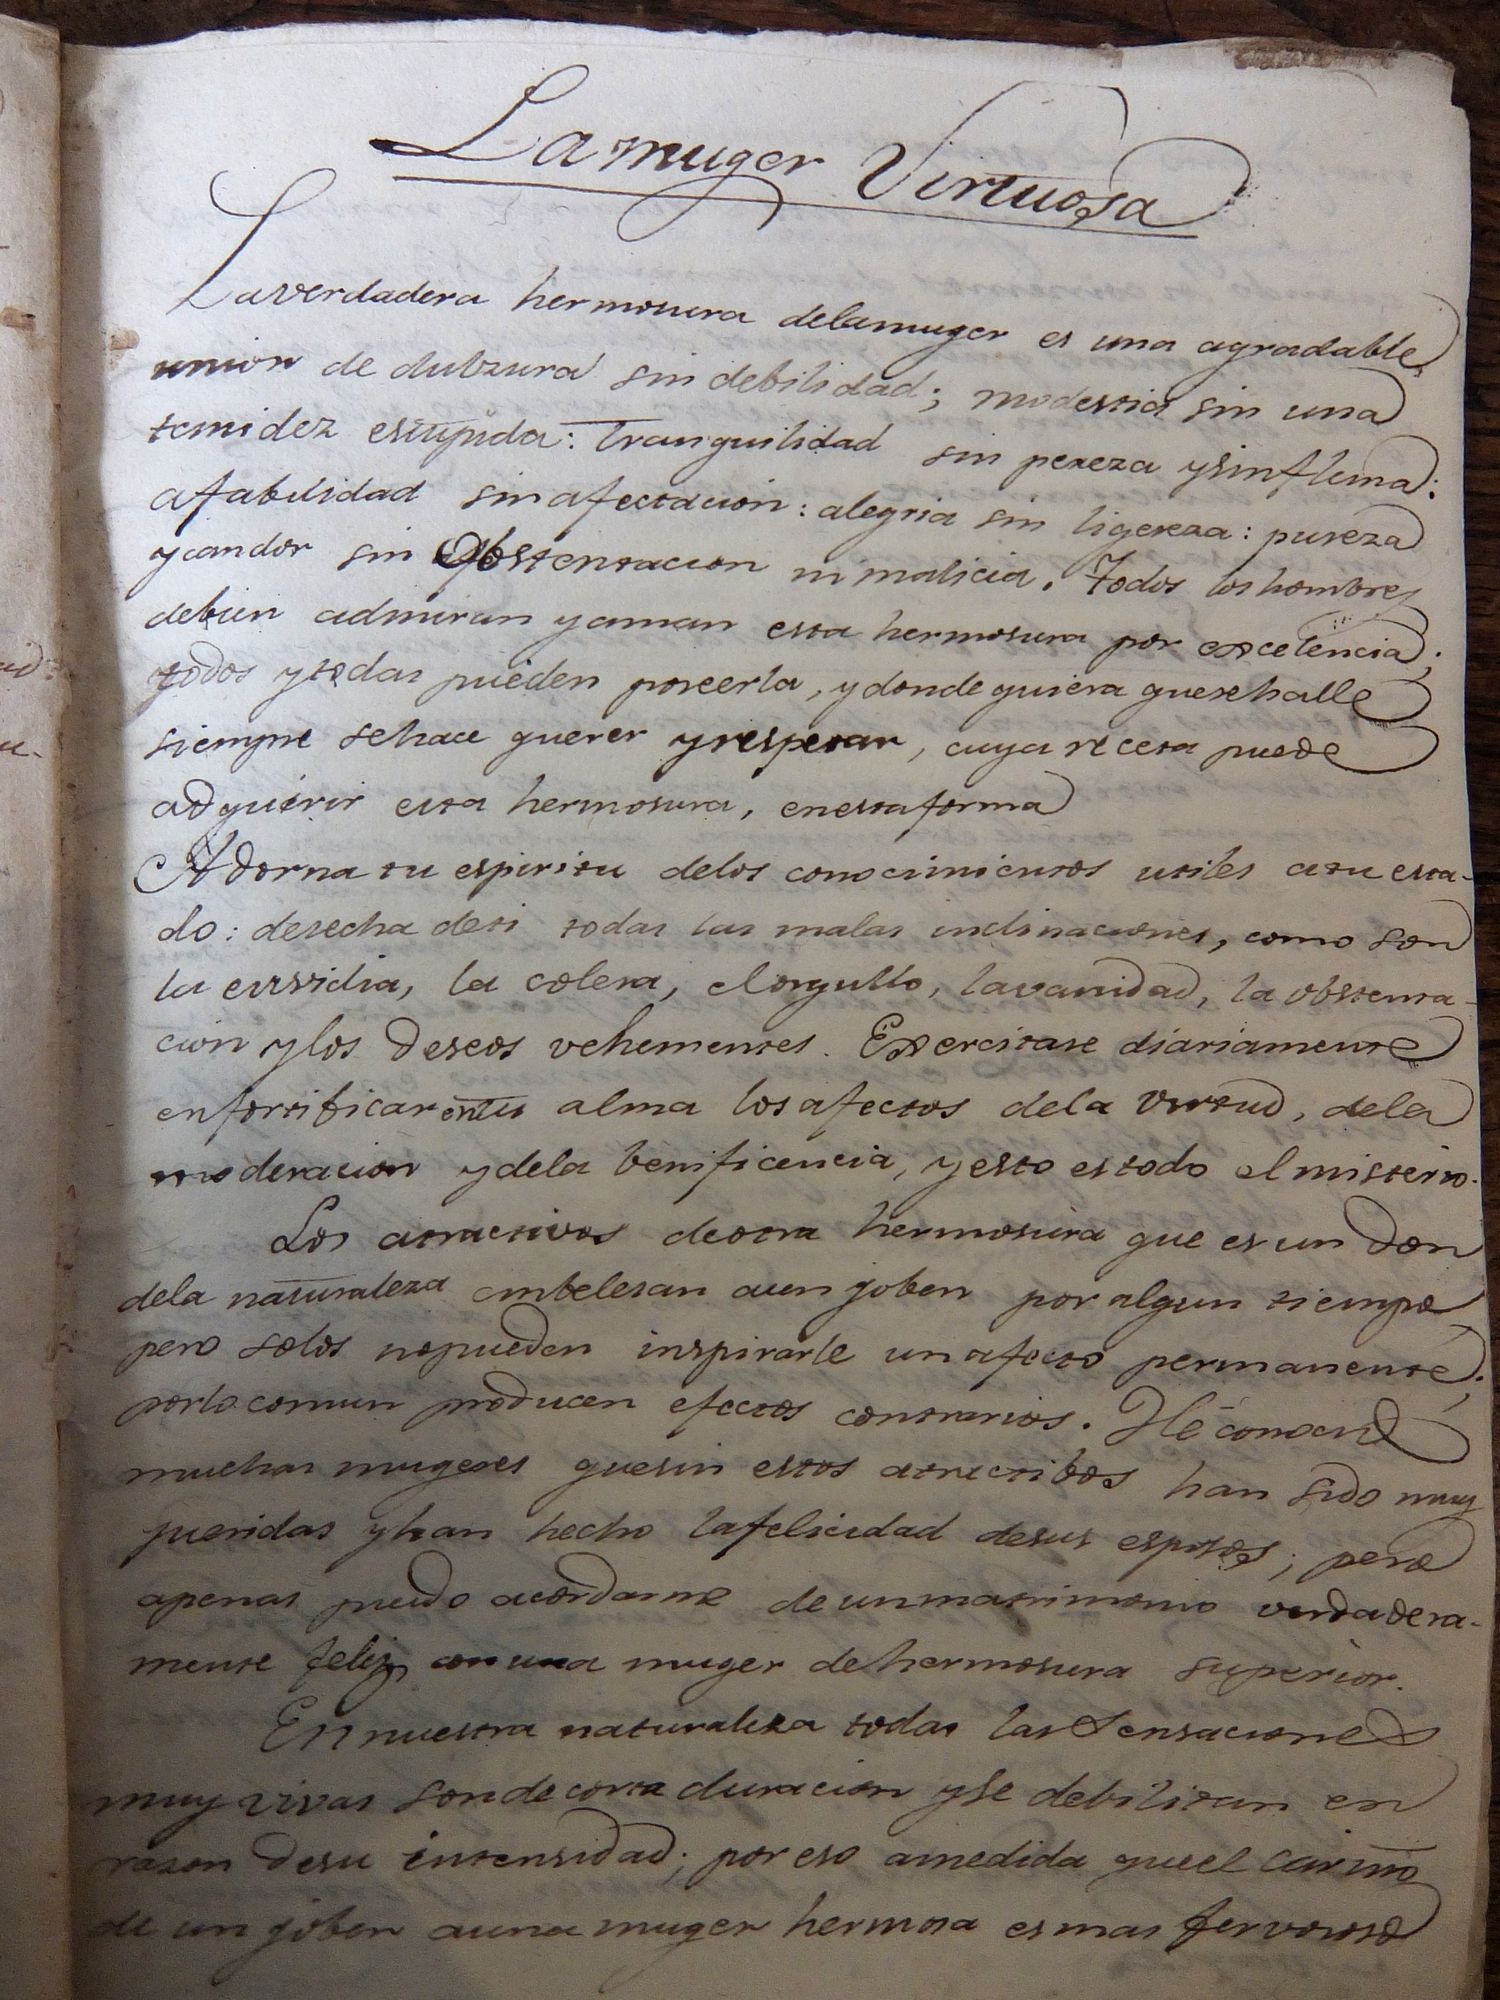 La muger Virtuosa
La verdadera hermosura dela muger es una agradable
union de dulzura sin debilidad; modestia sin una
temidez estupida: tranquilidad sin pereza y sin flema:
afabilidad sin afectacion: alegria sin ligereza: pureza
y candor sin Obstentacion ni malicia. Todos los hombres
debien admiran y aman esta hermosura por excelencia;
todos y todas pueden poseerla, y donde quiera que se halle
siempre se hace querer y respetar, cuya receta puede
adquirir esta hermosura, en esta forma
Adorna tu espiritu delos conocimientos utiles a tu esta-
do: desecha de ti todas las malas inclinaciones, como son
la envidia, la colera, el orgullo, la vanidad, la obstenta-
cion y los deseos vehementes. Exercitate diariamente
en fortificar en tu alma los afectos de la virtud, de la
moderacion y dela benificencia, y esto es todo el misterio.
Los atractivos de otra hermosura que es un don
dela naturaleza embelesan a un joben por algun tiempo
pero solos no pueden inspirarle un afecto permanente;
por lo comun producen efectos contrarios. Hé conocido
muchas mugeres que sin estos atractibos han sido muy
queridas y han hecho la felicidad de sus esposos; pero
apenas puedo acordarme de un matrimonio verdadera-
mente feliz con una muger de hermosura superior.
En nuestra naturaleza todas las Sensaciones
muy vivas son de corta duracion y se debilitan en
razon de su intensidad; por eso a medida que el cariño
de un joben a una muger hermosa es mas fervoroso